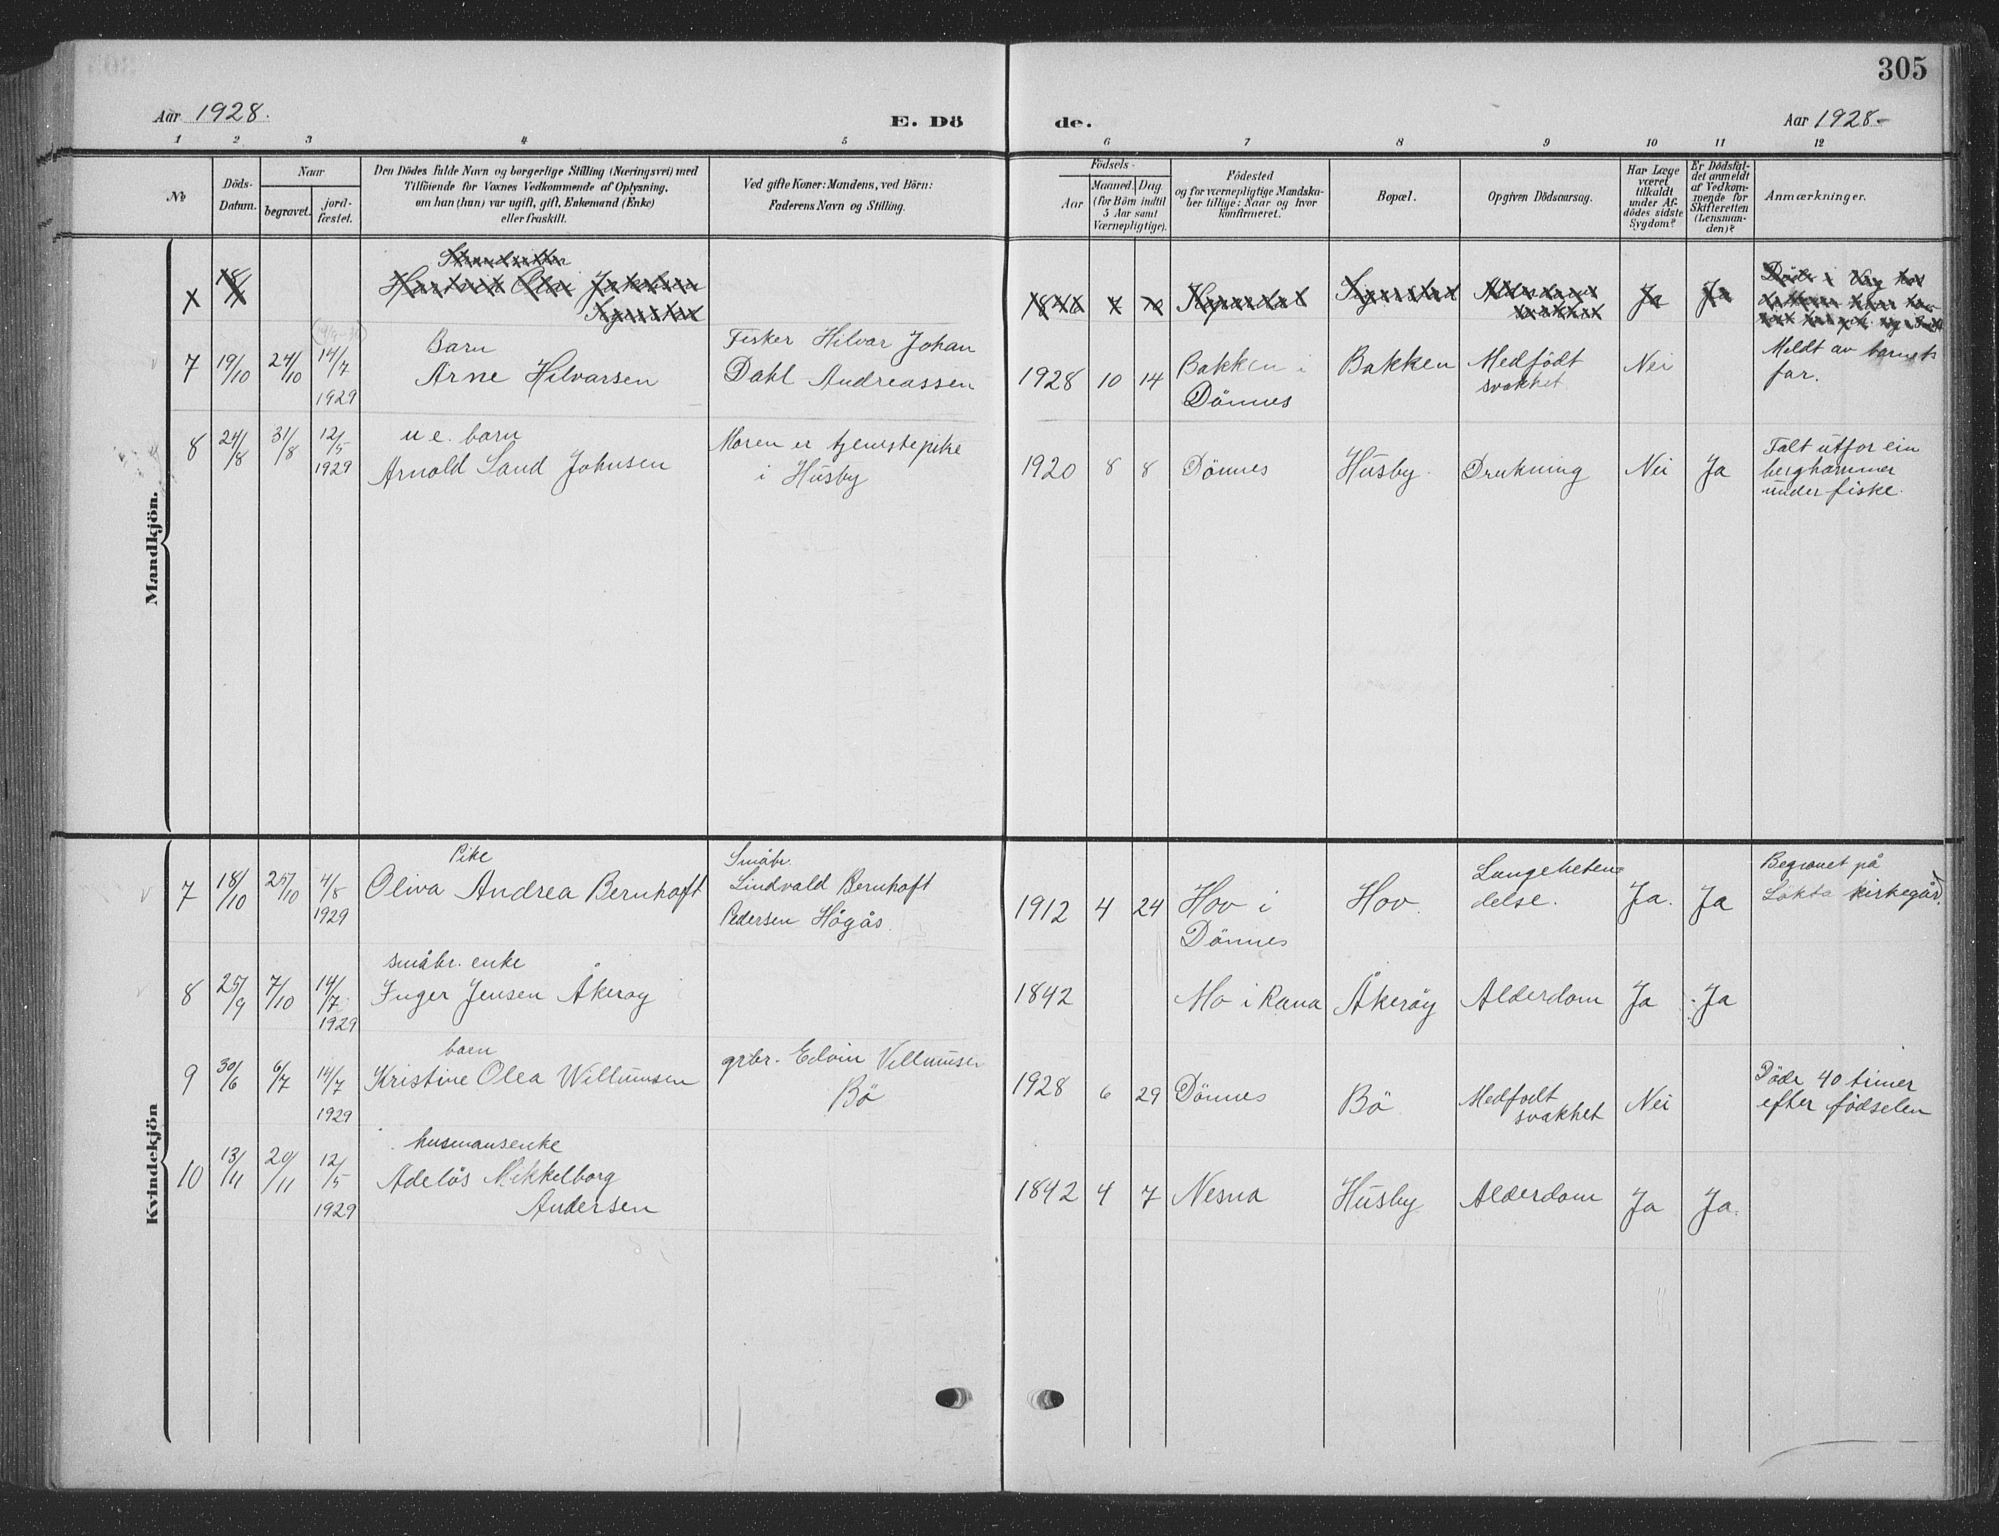 305
Aar 1928.
E. Dö
de.
Aar 1928-
1 2 3 4 5 6 7 8 9 10 11 12
No
Döds-
Datum.
Naar
begravet.
jord-
fæstet.
Den Dödes fulde Navn og borgerlige Stilling (Næringsvei) med
Tilföiende for Voxnes Vedkommende af Oplysning,
om han (hun) var ugift, gift, Enkemand (Enke)
eller fraskilt.
Ved gifte Koner: Mandens, ved Börn:
Faderens Navn og Stilling.
Födsels-
Aar
Maaned.
Dag
(for Börn indtil
5 Aar samt
Værnepligtige).
Födested
og for værnepligtige Mandska-
ber tillige: Naar og hvor
konfirmeret.
Bopæl.
Opgiven Dödsaarsag.
Har Læge
været
tilkaldt
under Af-
dödes sidste
Sygdom?
Er Dödsfal-
det anmeldt
af Vedkom-
mende for
Skifteretten
(Lensman-
den)?
Anmærkninger.
Mandkjön.
Ja
Ja
7
19/10
24/10
14/7
1929
Barn
Arne Hilvarsen
Fisker Hilvar Johan
Dahl Andreassen
1928
10
14
Bakken i
Dönnes
Bakken
Medfödt
svakhet
Nei
Meldt av barnets
far.
8
24/8
31/8
12/5
1929
u e. barn
Arnold Sand Johnsen
Moren er tjenestepike
i Husby
1920
8
8
Dönnes
Husby.
Drukning
Nei
Ja
Falt utfor ein
berghammer
under fiske.
Kvindekjön
7
18/10
25/10
4/8
1929
Pike
Oliva Andrea Bernhoft
Småbr.
Lindvald Bernhoft
Pedersen Högås.
1912
4
24
Hov i
Dönnes
Hov.
Lungebeten-
delse.
Ja.
Ja
Begravet på
Løkta kirkegård.
8
25/9
7/10
14/7
1929
småbr. enke
Inger Jensen Åkerøy
1842
Mo i Rana
Åkeröy
Alderdom
Ja
Ja
9
30/6
6/7
14/7
1929
barn
Kristine Olea Willumsen
grbr. Edvin Villumsen
Bö
1928
6
29
Dönnes
Bö
Medfödt
svakhet
Nei
Döde 40 timer
efter födselen
10
13/11
20/11
12/5
1929
husmansenke
Adelös Mikkelborg
Andersen
1842
4
7
Nesna
Husby
Alderdom
Ja
Ja.